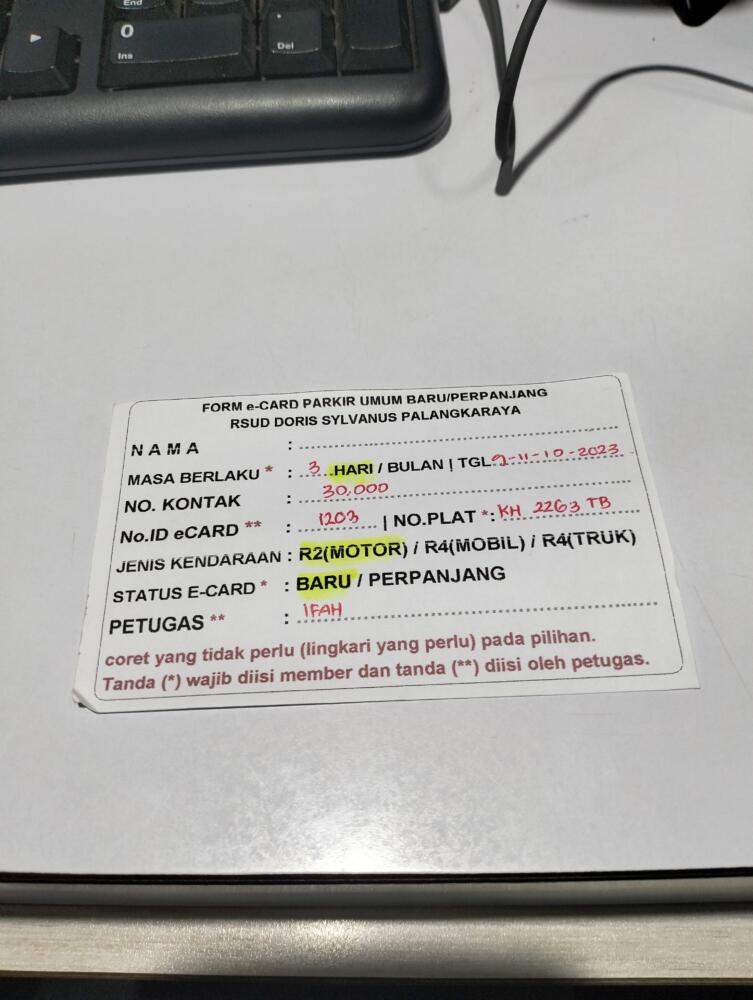 End
0
Ins
Del
FORM e-CARD PARKIR UMUM BARU/PERPANJANG
RSUD DORIS SYLVANUS PALANGKARAYA
NAMA :
MASA BERLAKU * : 3 HARI / BULAN | TGL 9-11-10-2023
NO. KONTAK : 30.000
No.ID eCARD ** : 1203 | NO.PLAT *: KH 2263 TB
JENIS KENDARAAN : R2(MOTOR) / R4(MOBIL) / R4(TRUK)
STATUS E-CARD * : BARU / PERPANJANG
PETUGAS ** : IFAH
coret yang tidak perlu (lingkari yang perlu) pada pilihan.
Tanda (*) wajib diisi member dan tanda (**) diisi oleh petugas.